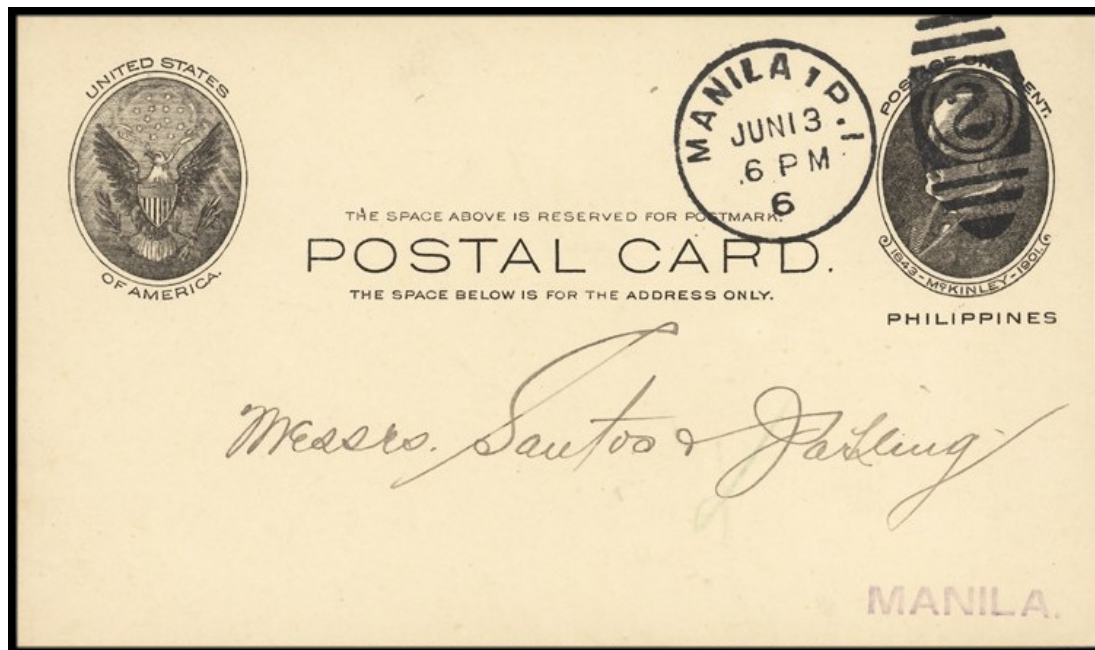 UNITED STATES
OF AMERICA.
MANILA 1 P. I
JUN 13
6 PM
6
2
POSTAGE ONE CENT.
1843 - McKINLEY - 1901.
PHILIPPINES
THE SPACE ABOVE IS RESERVED FOR POSTMARK.
POSTAL CARD.
THE SPACE BELOW IS FOR THE ADDRESS ONLY.
Messrs. Santos &
MANILA.